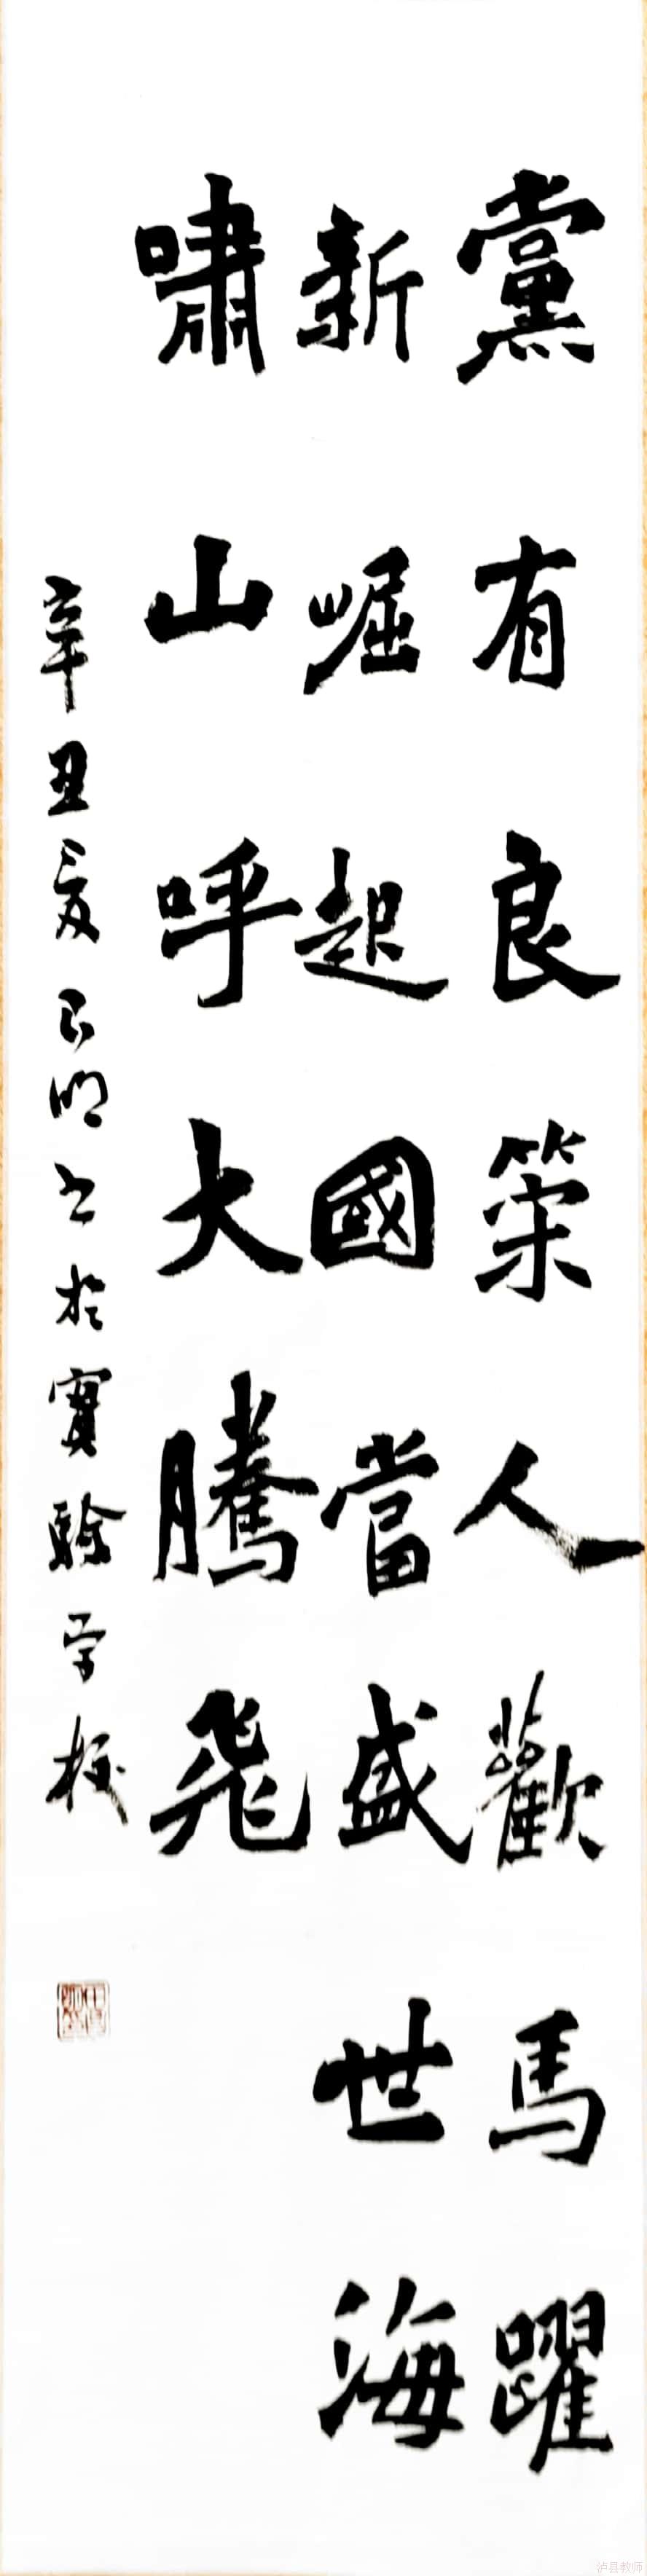 黨有良策人歡馬躍
新崛起國當盛世海
嘯山呼大騰飛
辛丑夏 明书於實驗学校
泸县教师